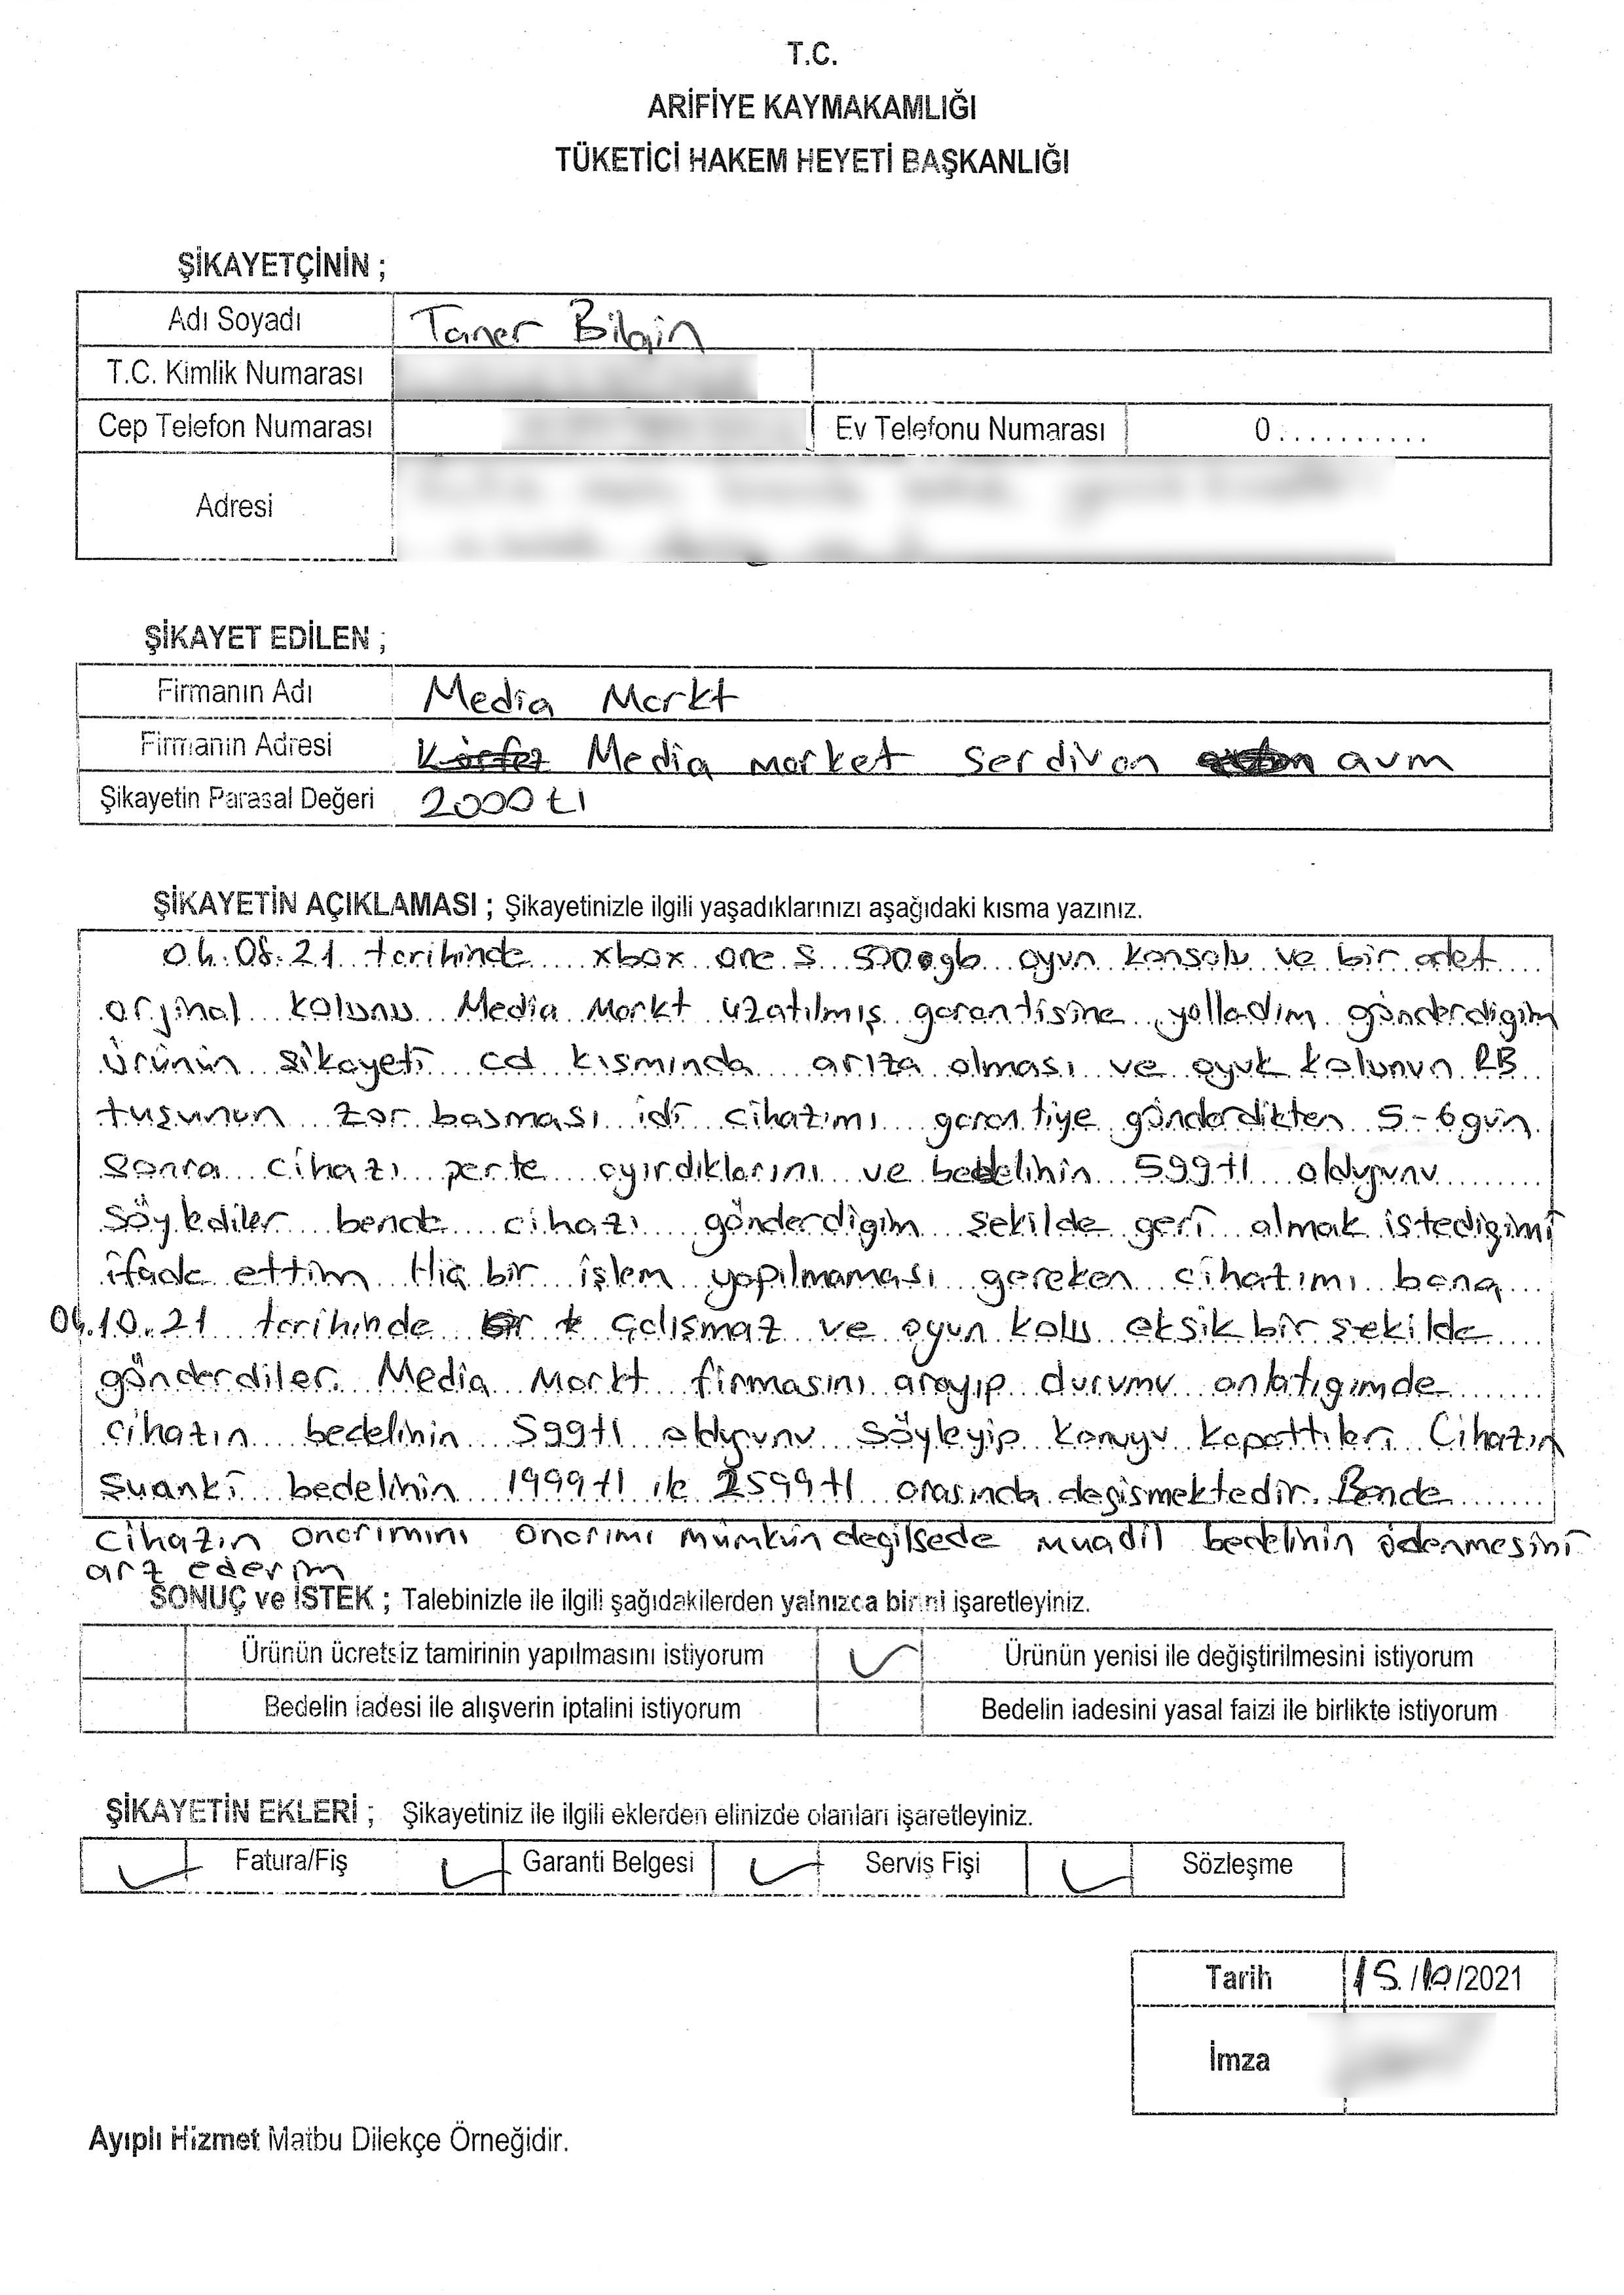 T.C.
ARİFİYE KAYMAKAMLIĞI
TÜKETİCİ HAKEM HEYETİ BAŞKANLIĞI
ŞİKAYETÇİNİN ;
Adı Soyadı Taner Bilgin
T.C. Kimlik Numarası
Cep Telefon Numarası Ev Telefonu Numarası 0..........
Adresi
ŞİKAYET EDİLEN ;
Firmanın Adı Media Markt
Firmanın Adresi Körfez Media market serdivan avm
Şikayetin Parasal Değeri 2000 tl
ŞİKAYETİN AÇIKLAMASI ; Şikayetinizle ilgili yaşadıklarınızı aşağıdaki kısma yazınız.
04.08.21 tarihinde xbox one s 500gb oyun konsolu ve bir adet
orjinal kolunu Media Markt uzatılmış garantisine yolladım gönderdigim
ürünün şikayeti cd kısmında arıza olması ve oyuk kolunun RB
tuşunun zor basması idi cihazımı garantiye gönderdikten 5-6 gün
sonra cihazı perte ayırdıklarını ve bedelinin 599tl oldugunu
söylediler bende cihazı gönderdigim şekilde geri almak istedigimi
ifade ettim Hiç bir işlem yapılmaması gereken cihazımı bana
04.10.21 tarihinde bir çalışmaz ve oyun kolu eksik bir şekilde
gönderdiler. Media Markt firmasını arayıp durumu anlatıgımde
cihazın bedelinin 599tl oldugunu söyleyip konuyu kapattılar. Cihazın
şuanki bedelinin 1999tl ile 2599tl arasında degişmektedir. Bende
cihazın onarımını onarımı mümkün degilsede muadil bedelinin ödenmesini
arz ederim
SONUÇ ve İSTEK ; Talebinizle ile ilgili şağıdakilerden yalnızca birini işaretleyiniz.
Ürünün ücretsiz tamirinin yapılmasını istiyorum ✓ Ürünün yenisi ile değiştirilmesini istiyorum
Bedelin iadesi ile alışverin iptalini istiyorum Bedelin iadesini yasal faizi ile birlikte istiyorum
ŞİKAYETİN EKLERİ ; Şikayetiniz ile ilgili eklerden elinizde olanları işaretleyiniz.
✓ Fatura/Fiş ✓ Garanti Belgesi ✓ Servis Fişi ✓ Sözleşme
Tarih 15/10/2021
İmza
Ayıplı Hizmet Matbu Dilekçe Örneğidir.